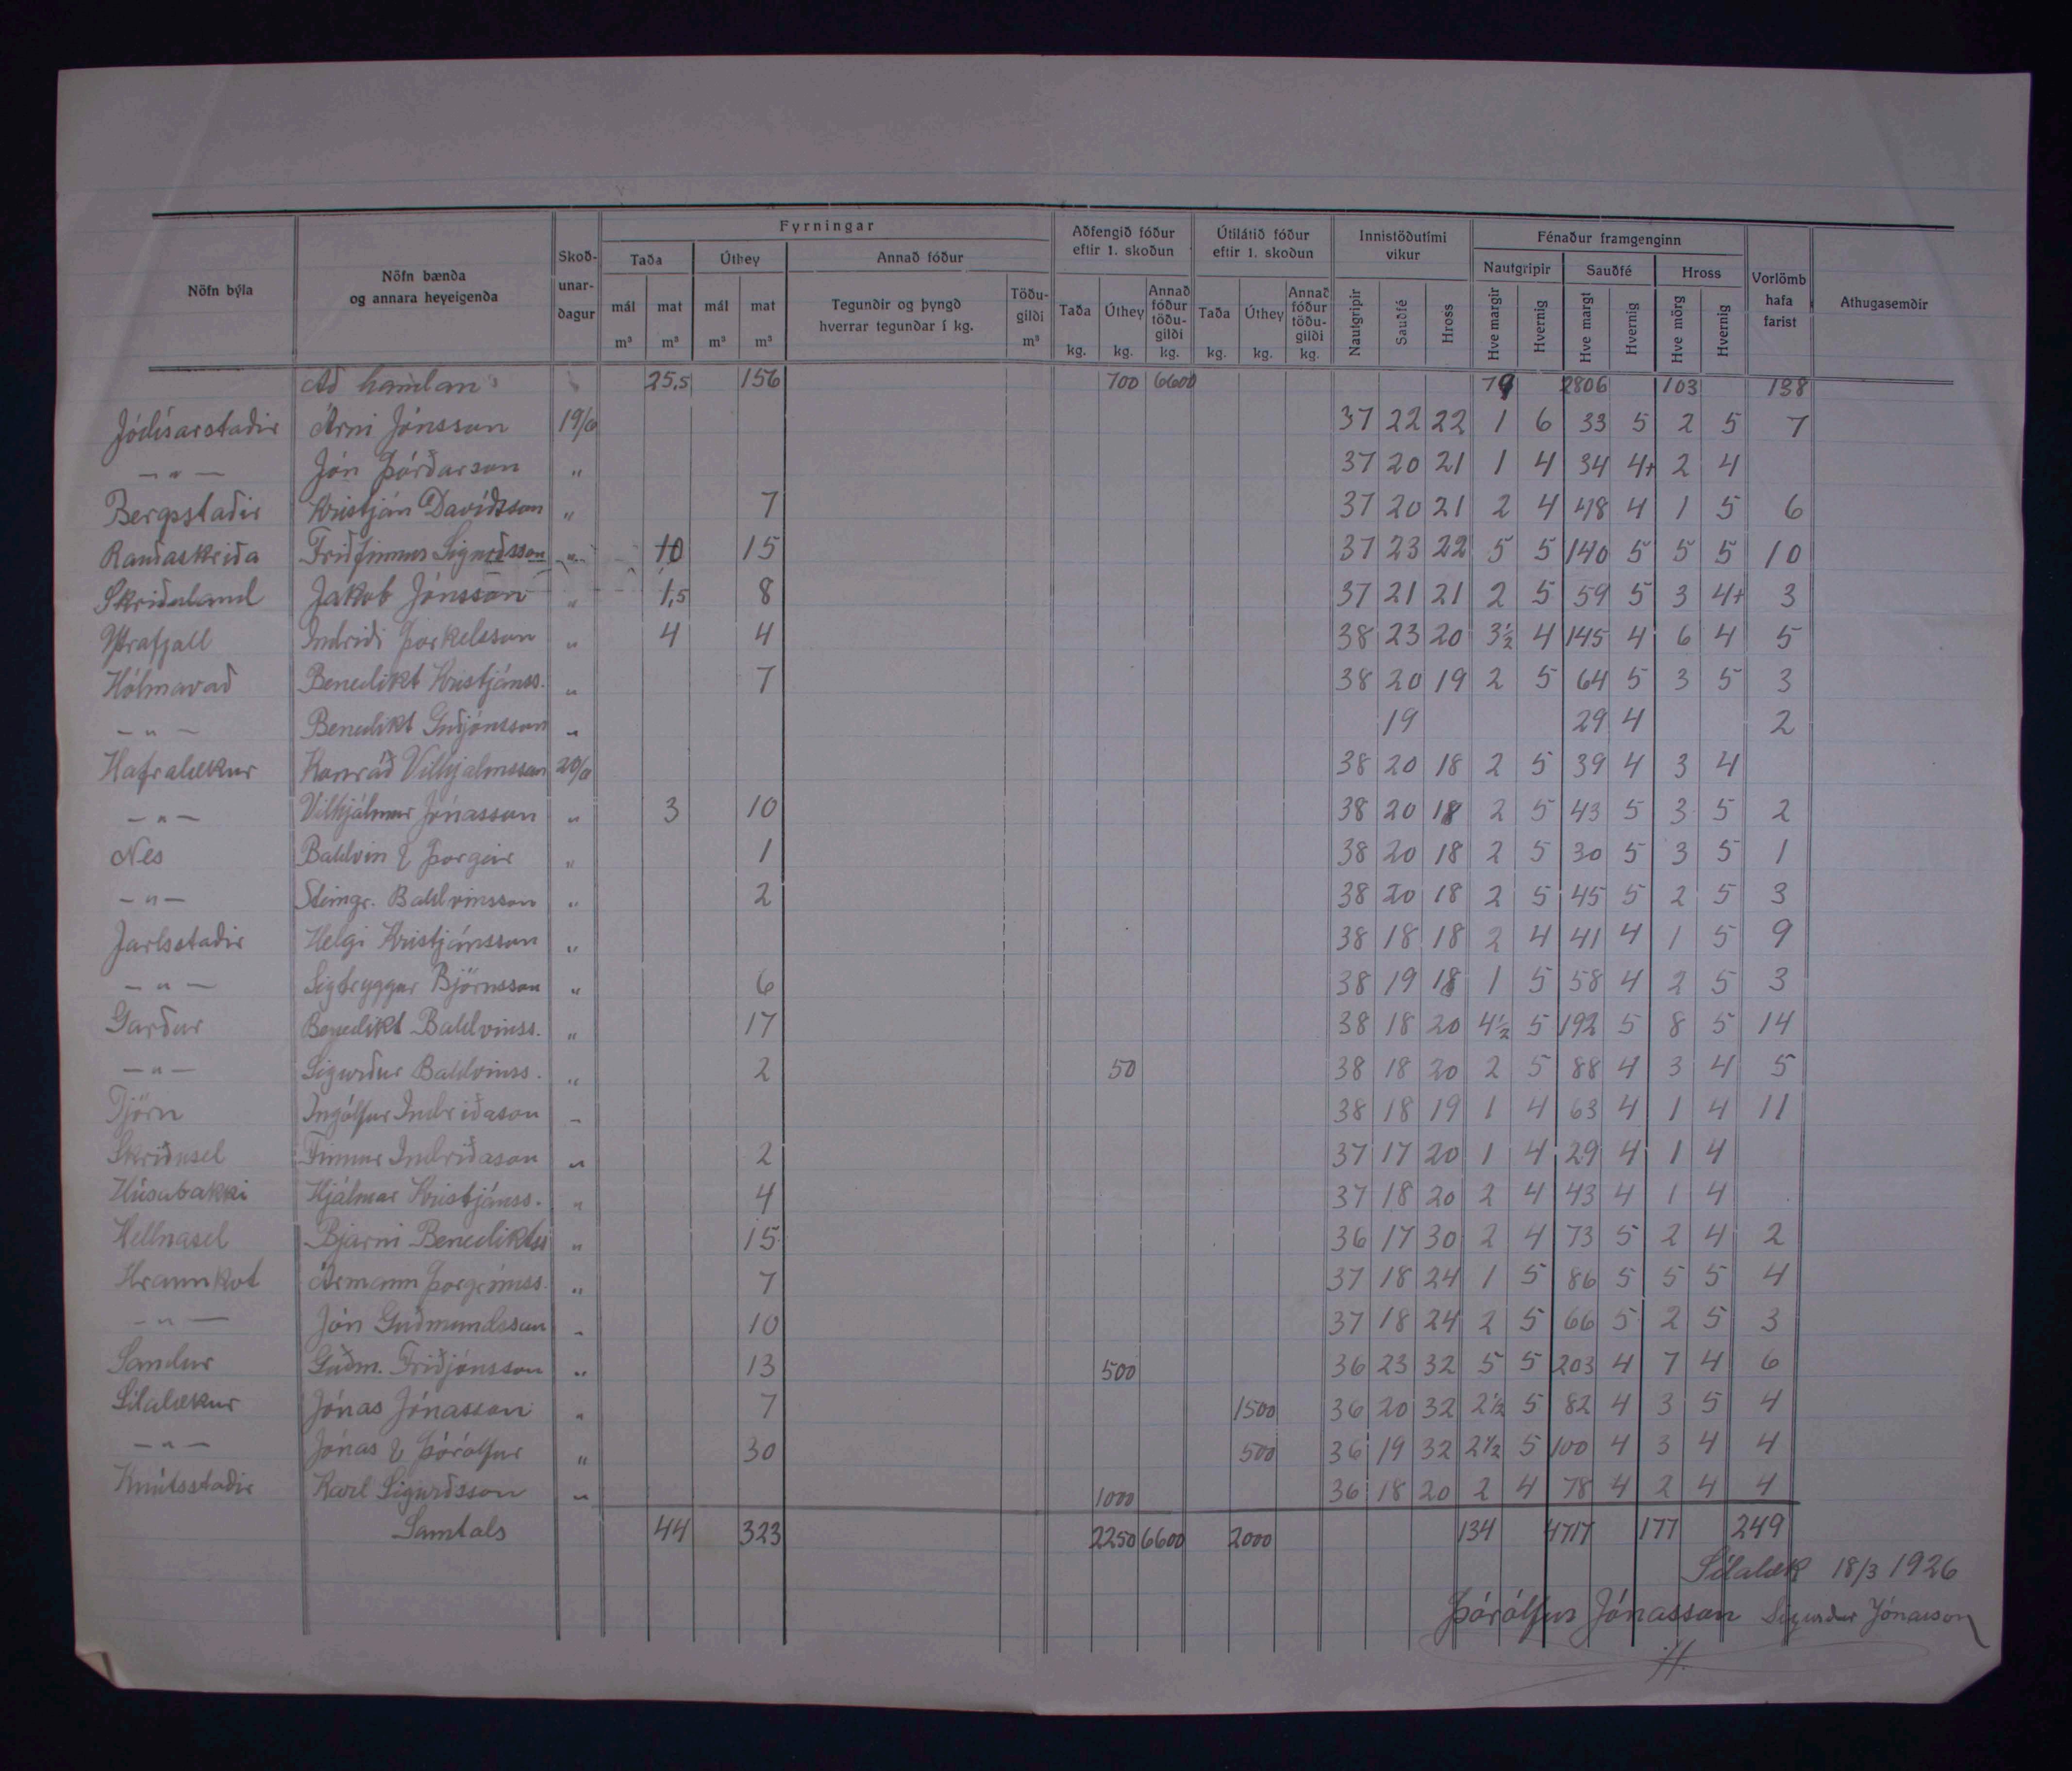 Fyrningar
Aðfengið fóður eftir 1. skoðun
Útilátið fóður eftir 1. skoðun
Innistöðutími vikur
Fénaður framgenginn
Nöfn býla
Nöfn bænda og annara heyeigenda
Skoð-unar-dagur
Taða
Úthey
Annað fóður
Nautgripir
Sauðfé
Hross
Vorlömb hafa farist
Athugasemdir
mál m³ mat m³ mál m³ mat m³
Tegundir og þyngd hverrar tegundar í kg.
Töðu-gildi m³
Taða kg. Úthey kg. Annað fóður töðu-gildi kg.
Taða kg. Úthey kg. Annað fóður töðu-gildi kg.
Nautgripir Sauðfé Hross
Hve margir Hvernig Hve margt Hvernig Hve mörg Hvernig
Að handan 25,5 156 700 6600 79 2806 103 138
Jódísarstaðir Árni Jónsson 19/6 37 22 22 1 6 33 5 2 5 7
— " — Jón Þórðarson " 37 20 21 1 4 34 4+ 2 4
Bergsstaðir Kristján Davíðsson " 7 37 20 21 2 4 48 4 1 5 6
Rauðaskriða Friðfinnur Sigurðsson " 10 15 37 23 22 5 5 140 5 5 5 10
Skriðuland Jakob Jónsson " 1,5 8 37 21 21 2 5 59 5 3 4+ 3
Ytrafjall Indriði Þorkelsson " 4 4 38 23 20 3½ 4 145 4 6 4 5
Hólmavað Benedikt Kristjánss. " 7 38 20 19 2 5 64 5 3 5 3
— " — Benedikt Guðjónsson " 19 29 4 2
Hafralækur Konráð Vilhjalmsson 20/6 38 20 18 2 5 39 4 3 4
— " — Vilhjálmur Jónasson " 3 10 38 20 18 2 5 43 5 3 5 2
Nes Baldvin & Þorgeir " 1 38 20 18 2 5 30 5 3 5 1
— " — Steingr. Baldvinsson " 2 38 20 18 2 5 45 5 2 5 3
Jarlsstaðir Helgi Kristjánsson " 38 18 18 2 4 41 4 1 5 9
— " — Sigtryggur Björnsson " 6 38 19 18 1 5 58 4 2 5 3
Garður Benedikt Baldvinss. " 17 38 18 20 4½ 5 192 5 8 5 14
— " — Sigurður Baldvinss. " 2 50 38 18 20 2 5 88 4 3 4 5
Tjörn Ingólfur Indriðason " 38 18 19 1 4 63 4 1 4 11
Skriðusel Finnur Indriðason " 2 37 17 20 1 4 29 4 1 4
Húsabakki Hjálmar Kristjánss. " 4 37 18 20 2 4 43 4 1 4
Hellnasel Bjarni Benediktss " 15 36 17 30 2 4 73 5 2 4 2
Hraunkot Ármann Þorgrímss. " 7 37 18 24 1 5 86 5 5 5 4
— " — Jón Guðmundsson " 10 37 18 24 2 5 66 5 2 5 3
Sandur Guðm. Friðjónsson " 13 500 36 23 32 5 5 203 4 7 4 6
Sílalækur Jónas Jónasson " 7 1500 36 20 32 2½ 5 82 4 3 5 4
— " — Jónas & Þórólfur " 30 500 36 19 32 2½ 5 100 4 3 4 4
Knútsstaðir Karl Sigurðsson " 1000 36 18 20 2 4 78 4 2 4 4
Samtals 44 323 2250 6600 2000 134 4717 177 249
Sílalæk 18/3 1926
Þórólfur Jónasson Sigurður Jónasson